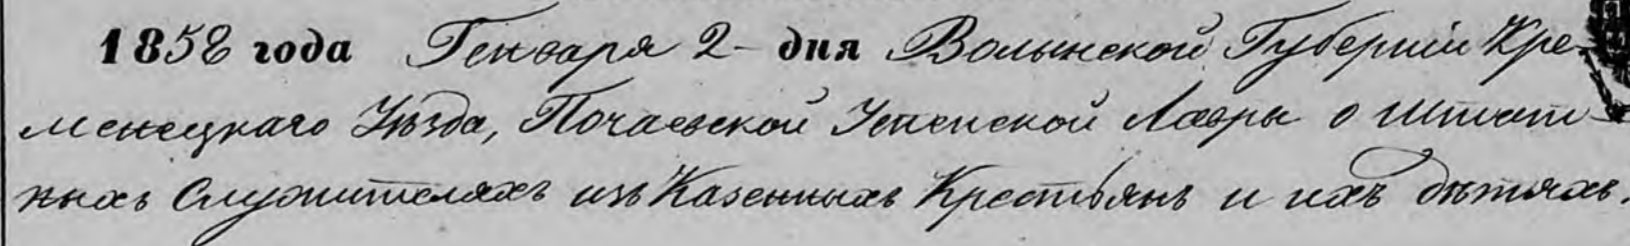 1858 года Генваря 2- дня Волынской Губернiи Кре-
менецкаго Уѣзда, Почаевской Успенской Лавры о штат-
ныхъ служителяхъ изъ Казенныхъ Крестьянъ и ихъ дѣтяхъ.